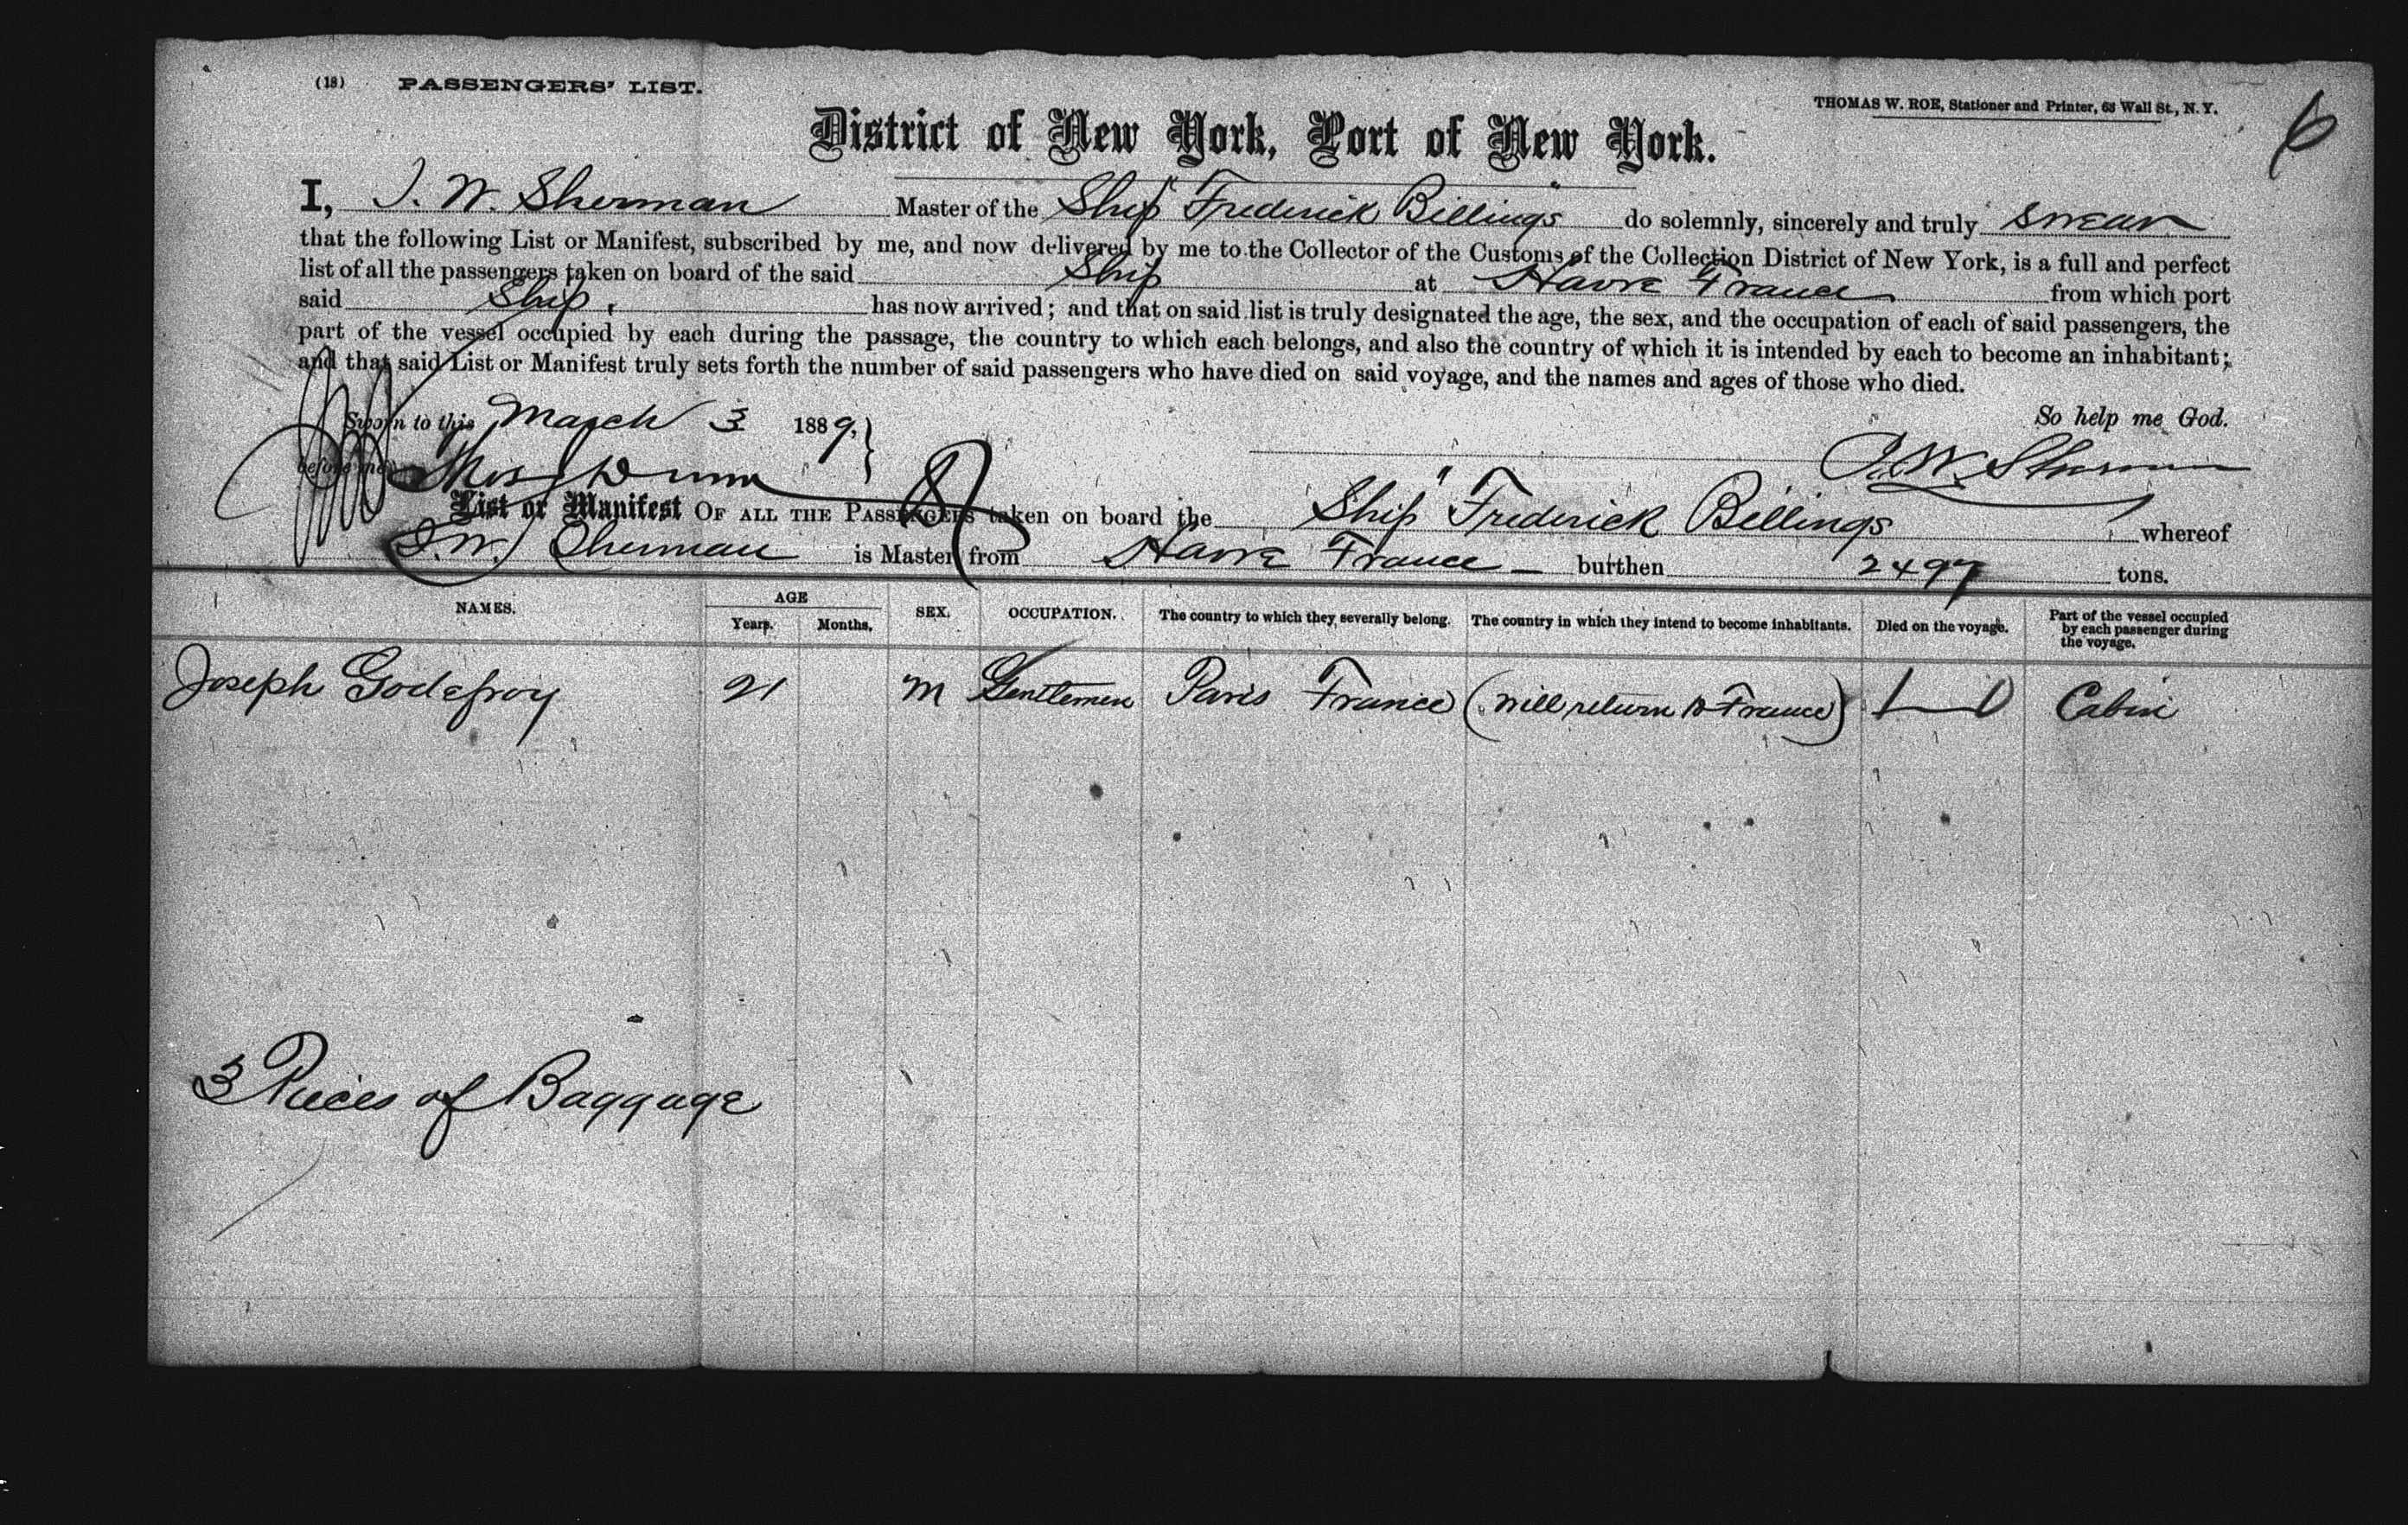 (18) PASSENGERS' LIST.
THOMAS W. ROE, Stationer and Printer, 63 Wall St., N. Y.
6
District of New York, Port of New York.
I, I. W. Sherman Master of the Ship "Frederick Billings" do solemnly, sincerely and truly swear
that the following List or Manifest, subscribed by me, and now delivered by me to the Collector of the Customs of the Collection District of New York, is a full and perfect
list of all the passengers taken on board of the said Ship at Havre France from which port
said Ship, has now arrived; and that on said list is truly designated the age, the sex, and the occupation of each of said passengers, the
part of the vessel occupied by each during the passage, the country to which each belongs, and also the country of which it is intended by each to become an inhabitant;
and that said List or Manifest truly sets forth the number of said passengers who have died on said voyage, and the names and ages of those who died.
So help me God.
Sworn to this March 3 1889,
before me Thos Dunn
I. W. Sherman
List or Manifest OF ALL THE PASSENGERS taken on board the Ship "Frederick Billings whereof
I. W. Sherman is Master from Havre France — burthen 2497 tons.
NAMES. AGE Years. Months. SEX. OCCUPATION. The country to which they severally belong. The country in which they intend to become inhabitants. Died on the voyage. Part of the vessel occupied by each passenger during the voyage.
Joseph Godefroy 21 M Gentlemen Paris France (will return to France) Cabin
3 Pieces of Baggage